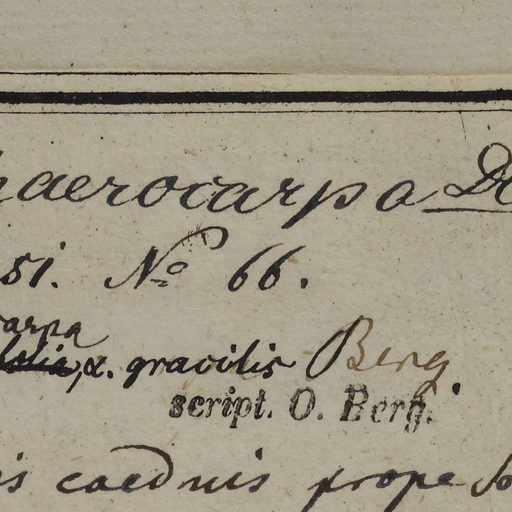 haerocarpa DC
51. No 66.
carpa
folia, α. gracilis Berg
script. O. Berg.
is caeduis prope So